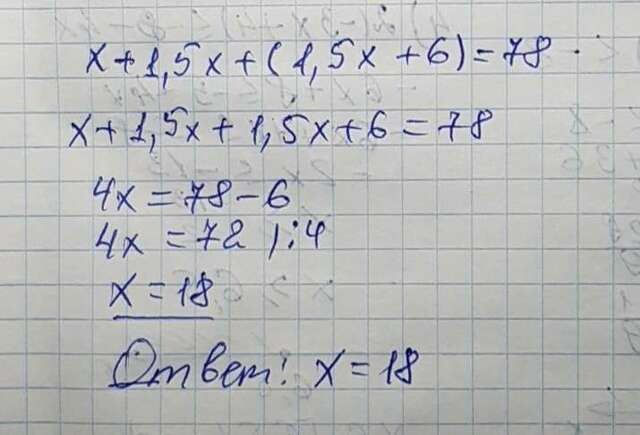 x+1,5x+(1,5x+6)=78
x+1,5x+1,5x+6=78
4x=78-6
4x=72 |:4
x=18
Ответ: x=18